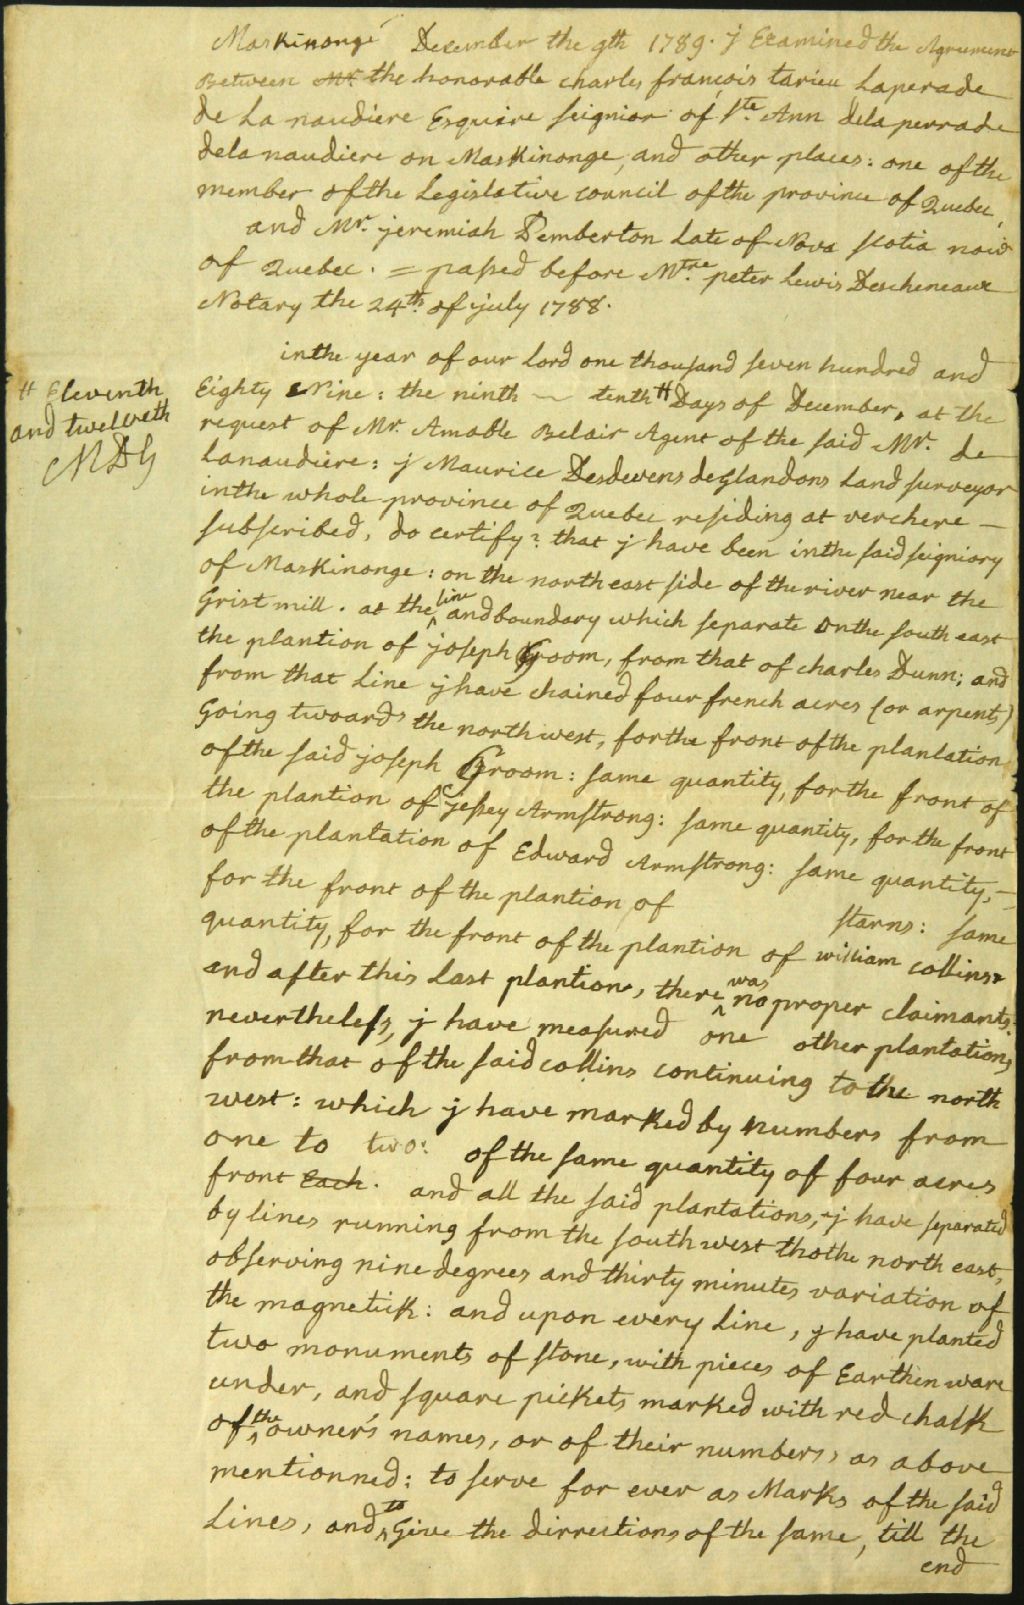 Maskinongé December the 9th 1789. j Examined the Agrument
Between Mr. the honorable charles françois tarieu Laperade
de La naudiere Esquire seignior of Ste. Ann dela perrade
dela naudiere on Maskinonge, and other places: one of the
member of the Legislative council of the province of Quebec,
and Mr. jeremiah Pemberton Late of Nova scotia now
of Quebec. = passed before Mtre. peter Lewis Descheneaux
Notary the 24th. of july 1788.
inthe year of our Lord one thousand seven hundred and
Eighty Nine: the ninth ~ tenth # Days of December, at the
# Eleventh
and twelveth
MDG
request of Mr. Amable Belair Agent of the said Mr. de
Lanaudiere: j Maurice Desdevens deGlandons Land surveyor
inthe whole province of Quebec residing at verchere —
subscribed, do certify: that j have been inthe said seigniory
of Maskinonge: on the north east side of the river near the
Grist mill. at the line and boundary which separate onthe south east
the plantion of joseph Groom, from that of charles Dunn; and
from that Line j have chained four french acres (or arpents)
Going twoards the northwest, for the front of the plantation
of the said joseph Groom: same quantity, for the front of
the plantion of jessey Armstrong: same quantity, for the front
of the plantation of Edward Armstrong: same quantity, —
for the front of the plantion of starns: same
quantity, for the front of the plantion of william collins.
and after this Last plantion, there was no proper claimants:
nevertheless, j have measured one other plantations
from that of the said collins continuing to the north
west: which j have marked by numbers from
one to two: of the same quantity of four acres
front Each. and all the said plantations, j have separated
by lines running from the south west thothe north east,
observing nine degrees and thirty minutes variation of
the magnetick: and upon every Line, j have planted
two monuments of stone, with pieces of Earthen ware
under, and square pickets marked with red chalk
of the owner's names, or of their numbers, as above
mentionned: to serve for ever as Marks of the said
Lines, and to Give the dirrections of the same, till the
end